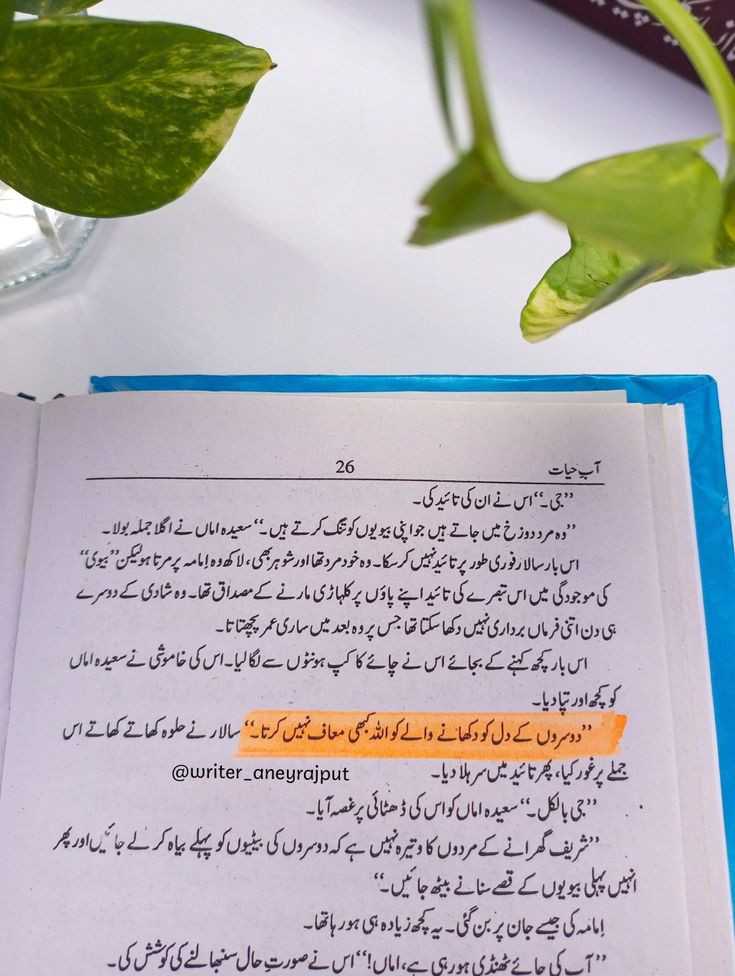 26
آبِ حیات
’’جی۔‘‘ اس نے ان کی تائید کی۔
’’وہ مرد دوزخ میں جاتے ہیں جو اپنی بیویوں کو تنگ کرتے ہیں۔‘‘ سعیدہ اماں نے اگلا جملہ بولا۔
اس بار سالار فوری طور پر تائید نہیں کر سکا۔ وہ خود مرد تھا اور شوہر بھی، لاکھ وہ اِمامہ پر مرتا ہو لیکن ’’بیوی‘‘
کی موجودگی میں اس تبصرے کی تائید اپنے پاؤں پر کلہاڑی مارنے کے مصداق تھا۔ وہ شادی کے دوسرے
ہی دن اتنی فرماں برداری نہیں دکھا سکتا تھا جس پر وہ بعد میں ساری عمر پچھتاتا۔
اس بار کچھ کہنے کے بجائے اس نے چائے کا کپ ہونٹوں سے لگا لیا۔ اس کی خاموشی نے سعیدہ اماں
کو کچھ اور تپا دیا۔
’’دوسروں کے دل کو دکھانے والے کو اللہ کبھی معاف نہیں کرتا۔‘‘ سالار نے حلوہ کھاتے کھاتے اس
جملے پر غور کیا، پھر تائید میں سر ہلا دیا۔
@writer_aneyrajput
’’جی بالکل۔‘‘ سعیدہ اماں کو اس کی ڈھٹائی پر غصہ آیا۔
’’شریف گھرانے کے مردوں کا وتیرہ نہیں ہے کہ دوسروں کی بیٹیوں کو پہلے بیاہ کر لے جائیں اور پھر
انہیں پہلی بیویوں کے قصے سنانے بیٹھ جائیں۔‘‘
اِمامہ کی جیسے جان پر بن گئی۔ یہ کچھ زیادہ ہی ہو رہا تھا۔
’’آپ کی چائے ٹھنڈی ہو رہی ہے، اماں!‘‘ اس نے صورتِ حال سنبھالنے کی کوشش کی۔